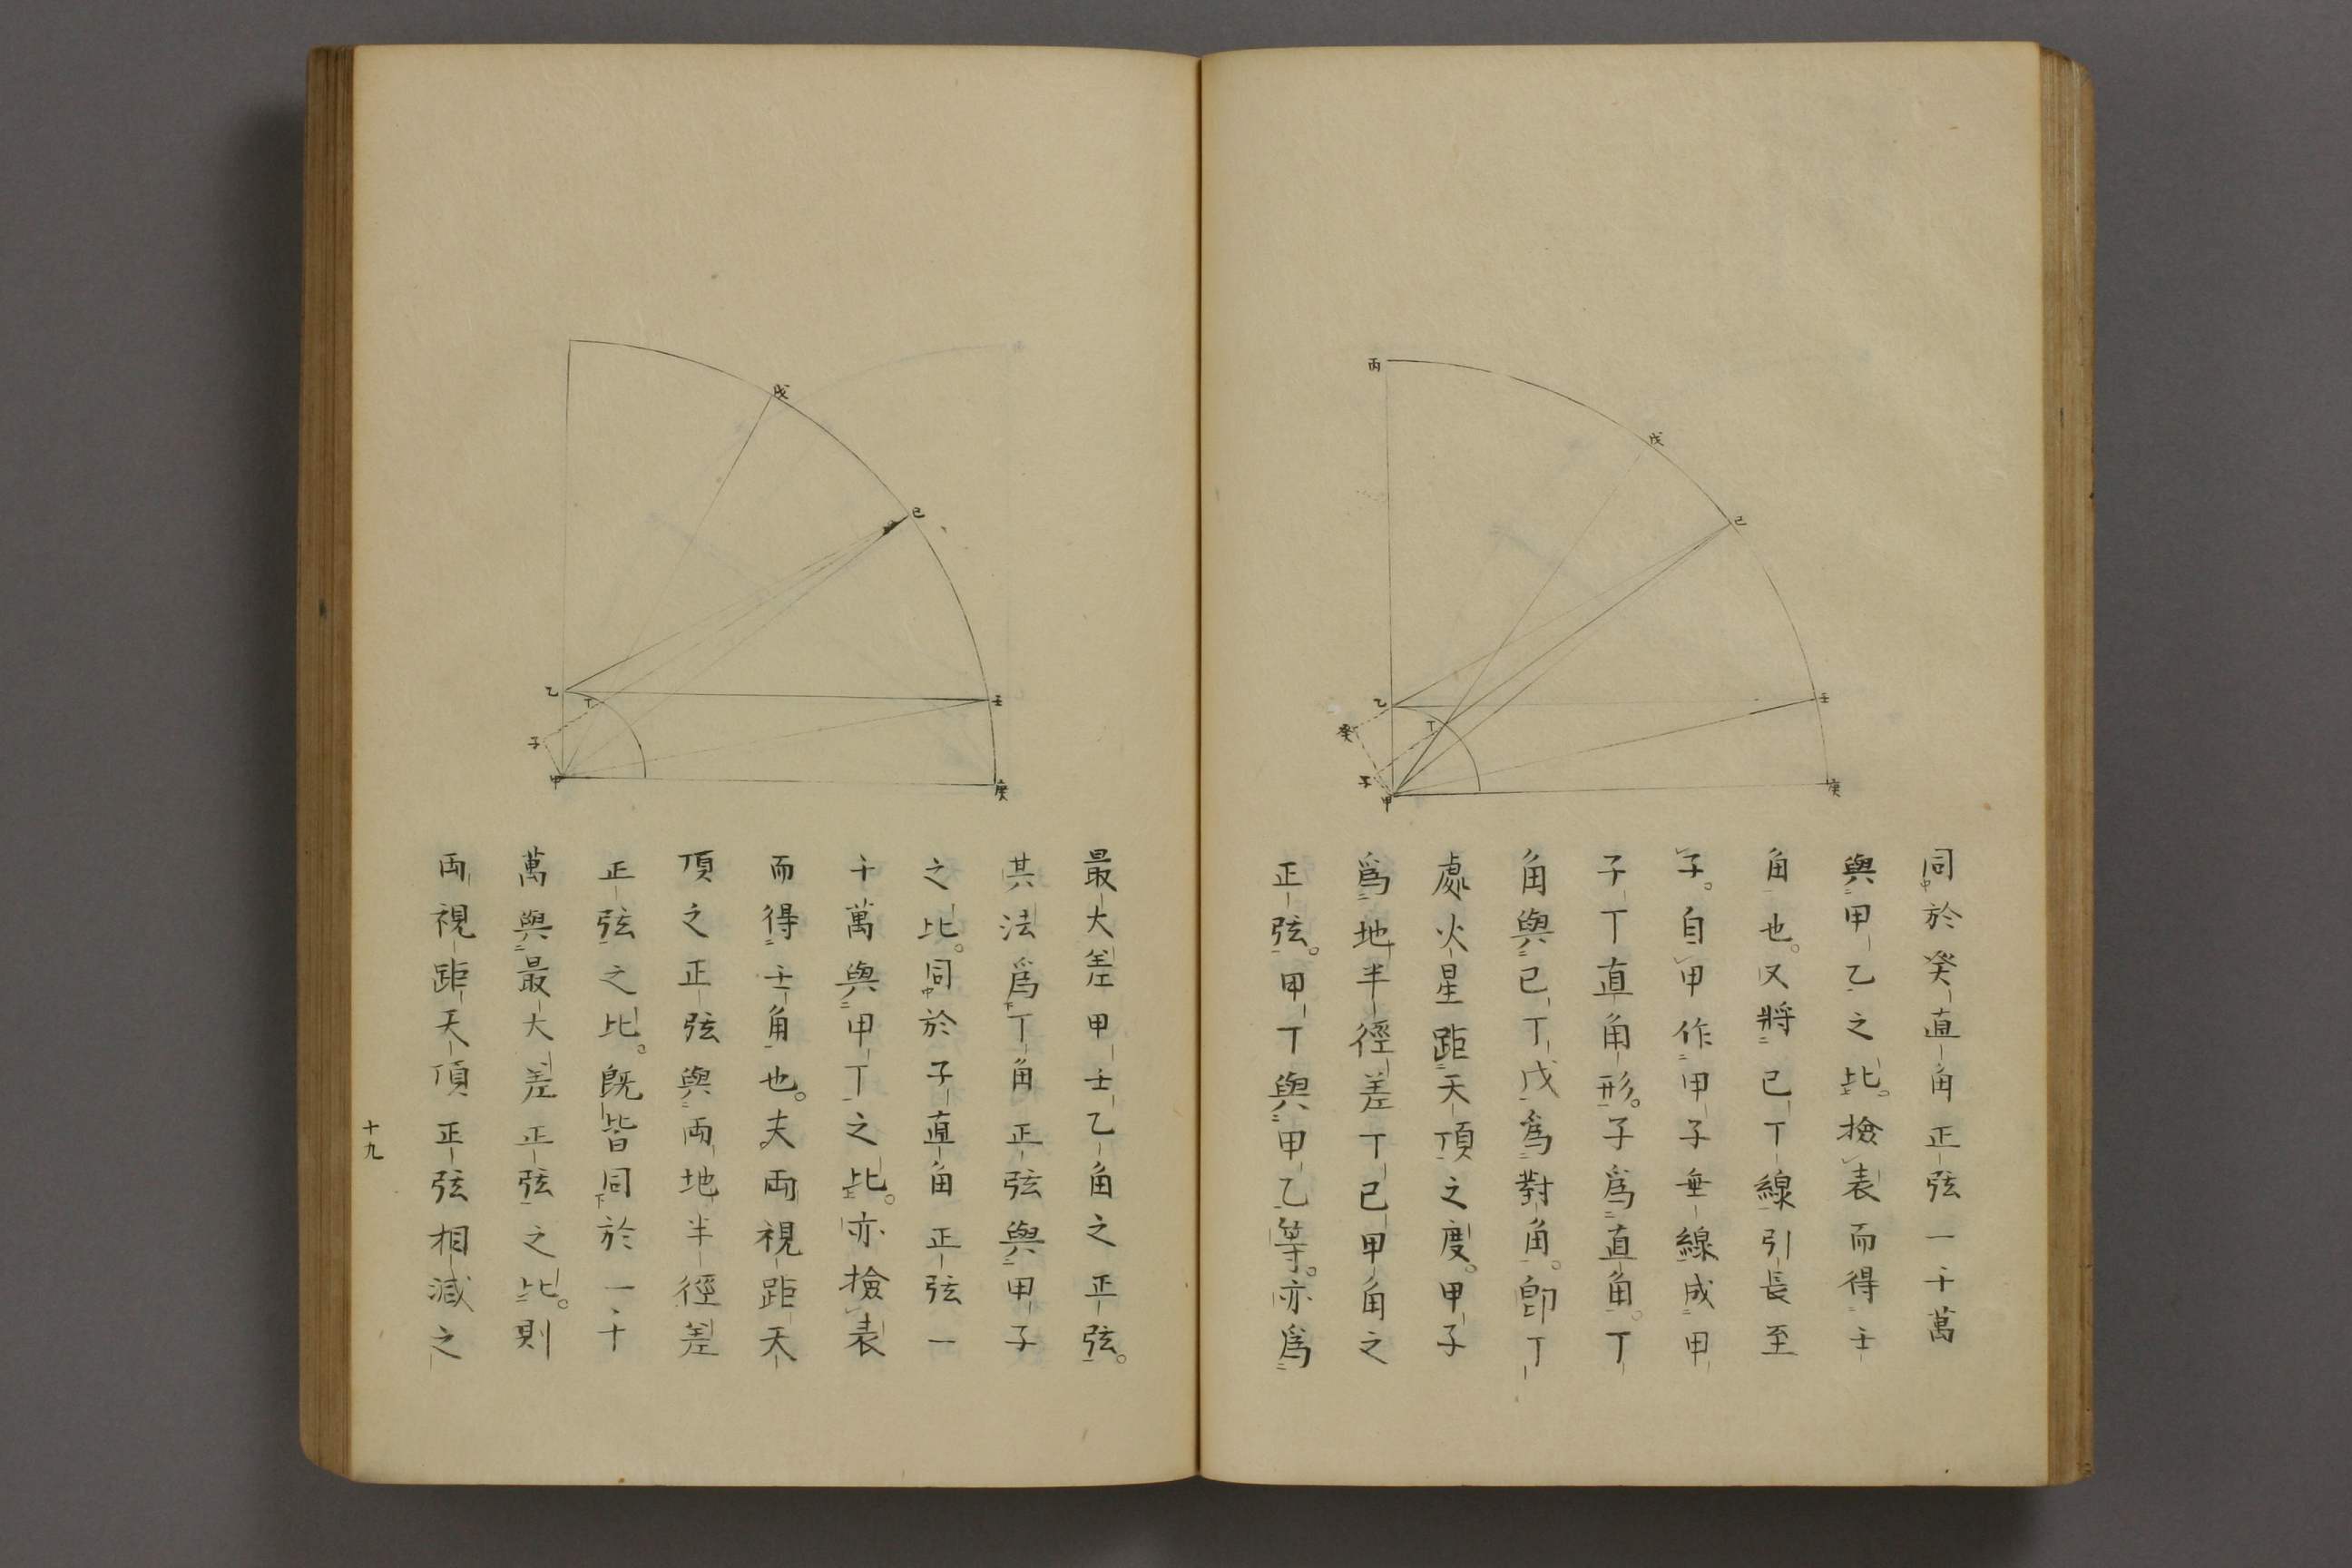 丙
戊
己
乙
壬
丁
癸
子
甲
庚
同於癸直角正弦一千萬
與甲乙之比。檢表而得壬
角也。又將己丁線引長至
子。自甲作甲子垂線成甲
子丁直角形。子爲直角。丁
角與己丁戊爲對角。卽丁
處火星距天頂之度。甲子
爲地半徑差丁己甲角之
正弦。甲丁與甲乙等。亦爲
戊
己
乙
丁
壬
子
甲
庚
最大差甲壬乙角之正弦。
其法爲丁角正弦與甲子
之比。同於子直角正弦一
千萬與甲丁之比。亦檢表
而得壬角也。夫兩視距天
頂之正弦與兩地半徑差
正弦之比。旣皆同於一千
萬與最大差正弦之比。則
兩視距天頂正弦相減之
十九